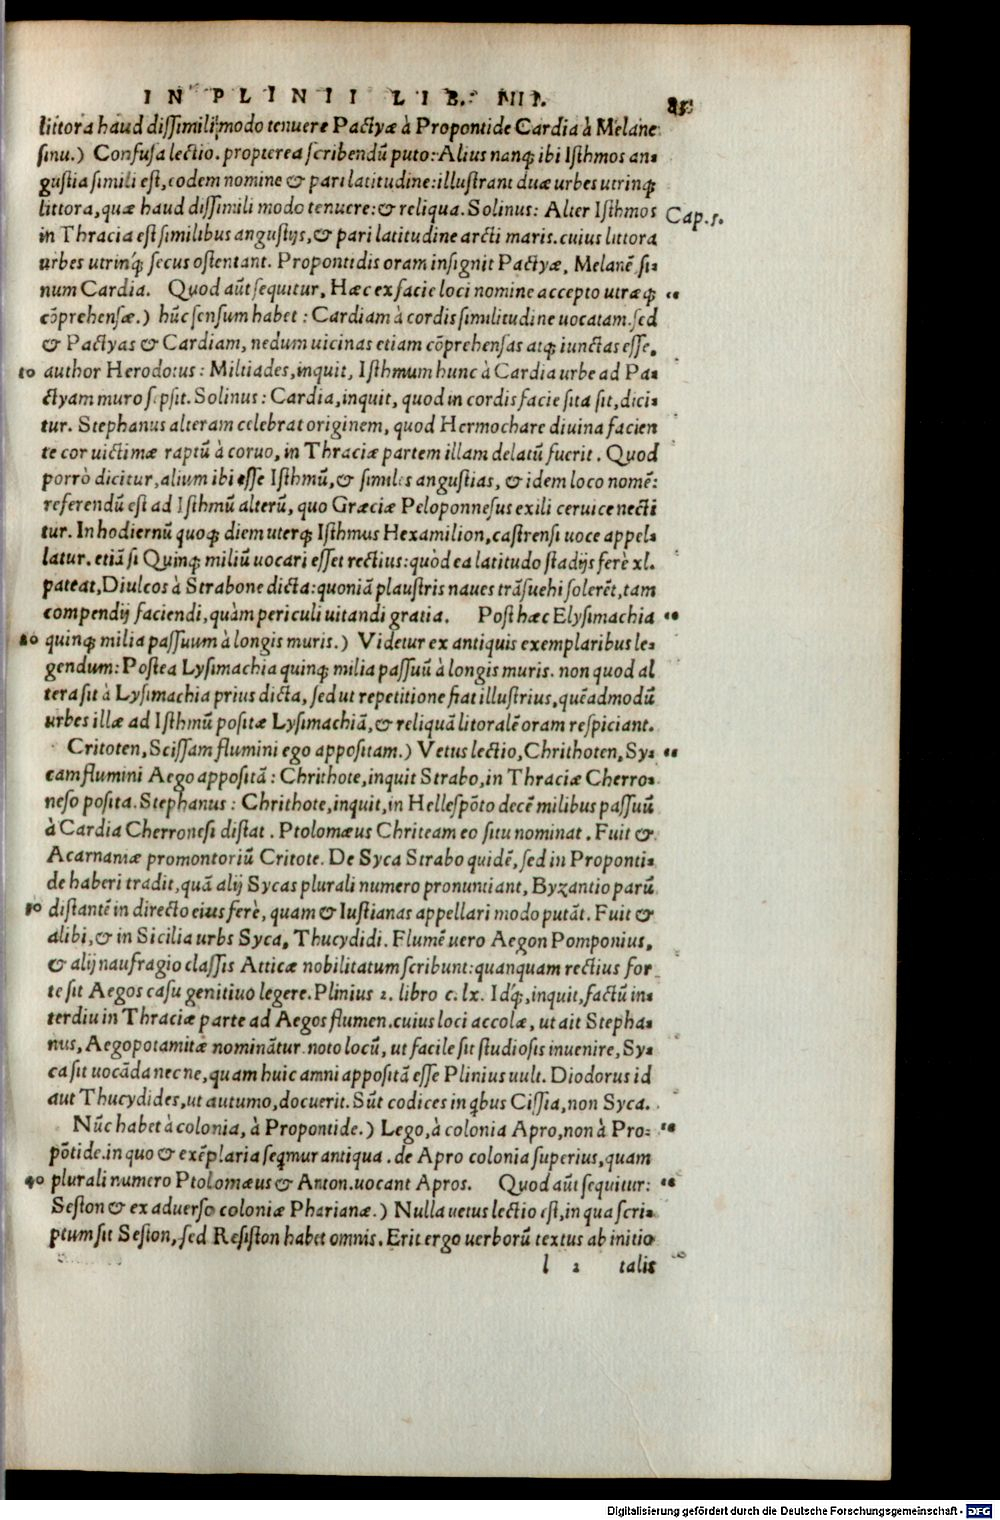 IN PLINII LIB. IIII. 85
littora haud dissimili modo tenuere Pactyæ à Propontide Cardia à Melane
sinu.) Confusa lectio. propterea scribendũ puto: Alius nanq; ibi Isthmos an-
gustia simili est, eodem nomine & pari latitudine: illustrant duæ urbes utrinq;
littora, quæ haud dissimili modo tenuere: & reliqua. Solinus: Alter Isthmos Cap. 5.
in Thracia est similibus angustijs, & pari latitudine arcti maris. cuius littora
urbes utrinq́; secus ostentant. Propontidis oram insignit Pactyæ, Melanẽ si-
num Cardia. Quod aũt sequitur, Hæc ex facie loci nomine accepto utræq; „
cõprehensæ.) hũc sensum habet: Cardiam à cordis similitudine uocatam. sed
& Pactyas & Cardiam, nedum uicinas etiam cõprehensas atq; iunctas esse,
10 author Herodotus: Miltiades, inquit, Isthmum hunc à Cardia urbe ad Pa-
ctyam muro sepsit. Solinus: Cardia, inquit, quod in cordis facie sita sit, dici-
tur. Stephanus alteram celebrat originem, quod Hermochare diuina facien
te cor uictimæ raptũ à coruo, in Thraciæ partem illam delatũ fuerit. Quod
porrò dicitur, alium ibi esse Isthmũ, & similes angustias, & idem loco nomẽ:
referendũ est ad Isthmũ alterũ, quo Græciæ Peloponnesus exili ceruice necti
tur. In hodiernũ quoq; diem uterq; Isthmus Hexamilion, castrensi uoce appel-
latur. etiã si Quinq; miliũ uocari esset rectius: quòd ea latitudo stadijs ferè xl.
pateat, Diulcos à Strabone dicta: quoniã plaustris naues trãsuehi solerẽt, tam
compendij faciendi, quàm periculi uitandi gratia. Post hæc Elysimachia „
20 quinq; milia passuum à longis muris.) Videtur ex antiquis exemplaribus le-
gendum: Postea Lysimachia quinq; milia passuũ à longis muris. non quod al
tera sit à Lysimachia prius dicta, sed ut repetitione fiat illustrius, quẽadmodũ
urbes illæ ad Isthmũ positæ Lysimachiã, & reliquã litoralẽ oram respiciant.
Critoten, Scissam flumini ego appositam.) Vetus lectio, Chrithoten, Sy- „
cam flumini Aego appositã: Chrithote, inquit Strabo, in Thraciæ Cherro-
neso posita. Stephanus: Chrithote, inquit, in Hellespõto decẽ milibus passuũ
à Cardia Cherronesi distat. Ptolomæus Chriteam eo situ nominat. Fuit &
Acarnaniæ promontoriũ Critote. De Syca Strabo quidẽ, sed in Proponti-
de haberi tradit, quã alij Sycas plurali numero pronuntiant, Byzantio parũ
30 distantẽ in directo eius ferè, quam & Iustianas appellari modo putãt. Fuit &
alibi, & in Sicilia urbs Syca, Thucydidi. Flumẽ uero Aegon Pomponius,
& alij naufragio classis Atticæ nobilitatum scribunt: quanquam rectius for
te sit Aegos casu genitiuo legere. Plinius 2. libro c. lx. Idq́;, inquit, factũ in-
terdiu in Thraciæ parte ad Aegos flumen. cuius loci accolæ, ut ait Stepha-
nus, Aegopotamitæ nominãtur. noto locũ, ut facile sit studiosis inuenire, Sy-
ca sit uocãda necne, quam huic amni appositã esse Plinius uult. Diodorus id
aut Thucydides, ut autumo, docuerit. Sũt codices in qbus Cissia, non Syca.
Nũc habet à colonia, à Propontide.) Lego, à colonia Apro, non à Pro- „
põtide. in quo & exẽplaria seqmur antiqua. de Apro colonia superius, quam
40 plurali numero Ptolomæus & Anton. uocant Apros. Quod aũt sequitur: „
Seston & ex aduerso coloniæ Pharianæ.) Nulla uetus lectio est, in qua scri-
ptum sit Seston, sed Resiston habet omnis. Erit ergo uerborũ textus ab initio
l 2 talis
Digitalisierung gefördert durch die Deutsche Forschungsgemeinschaft - DFG